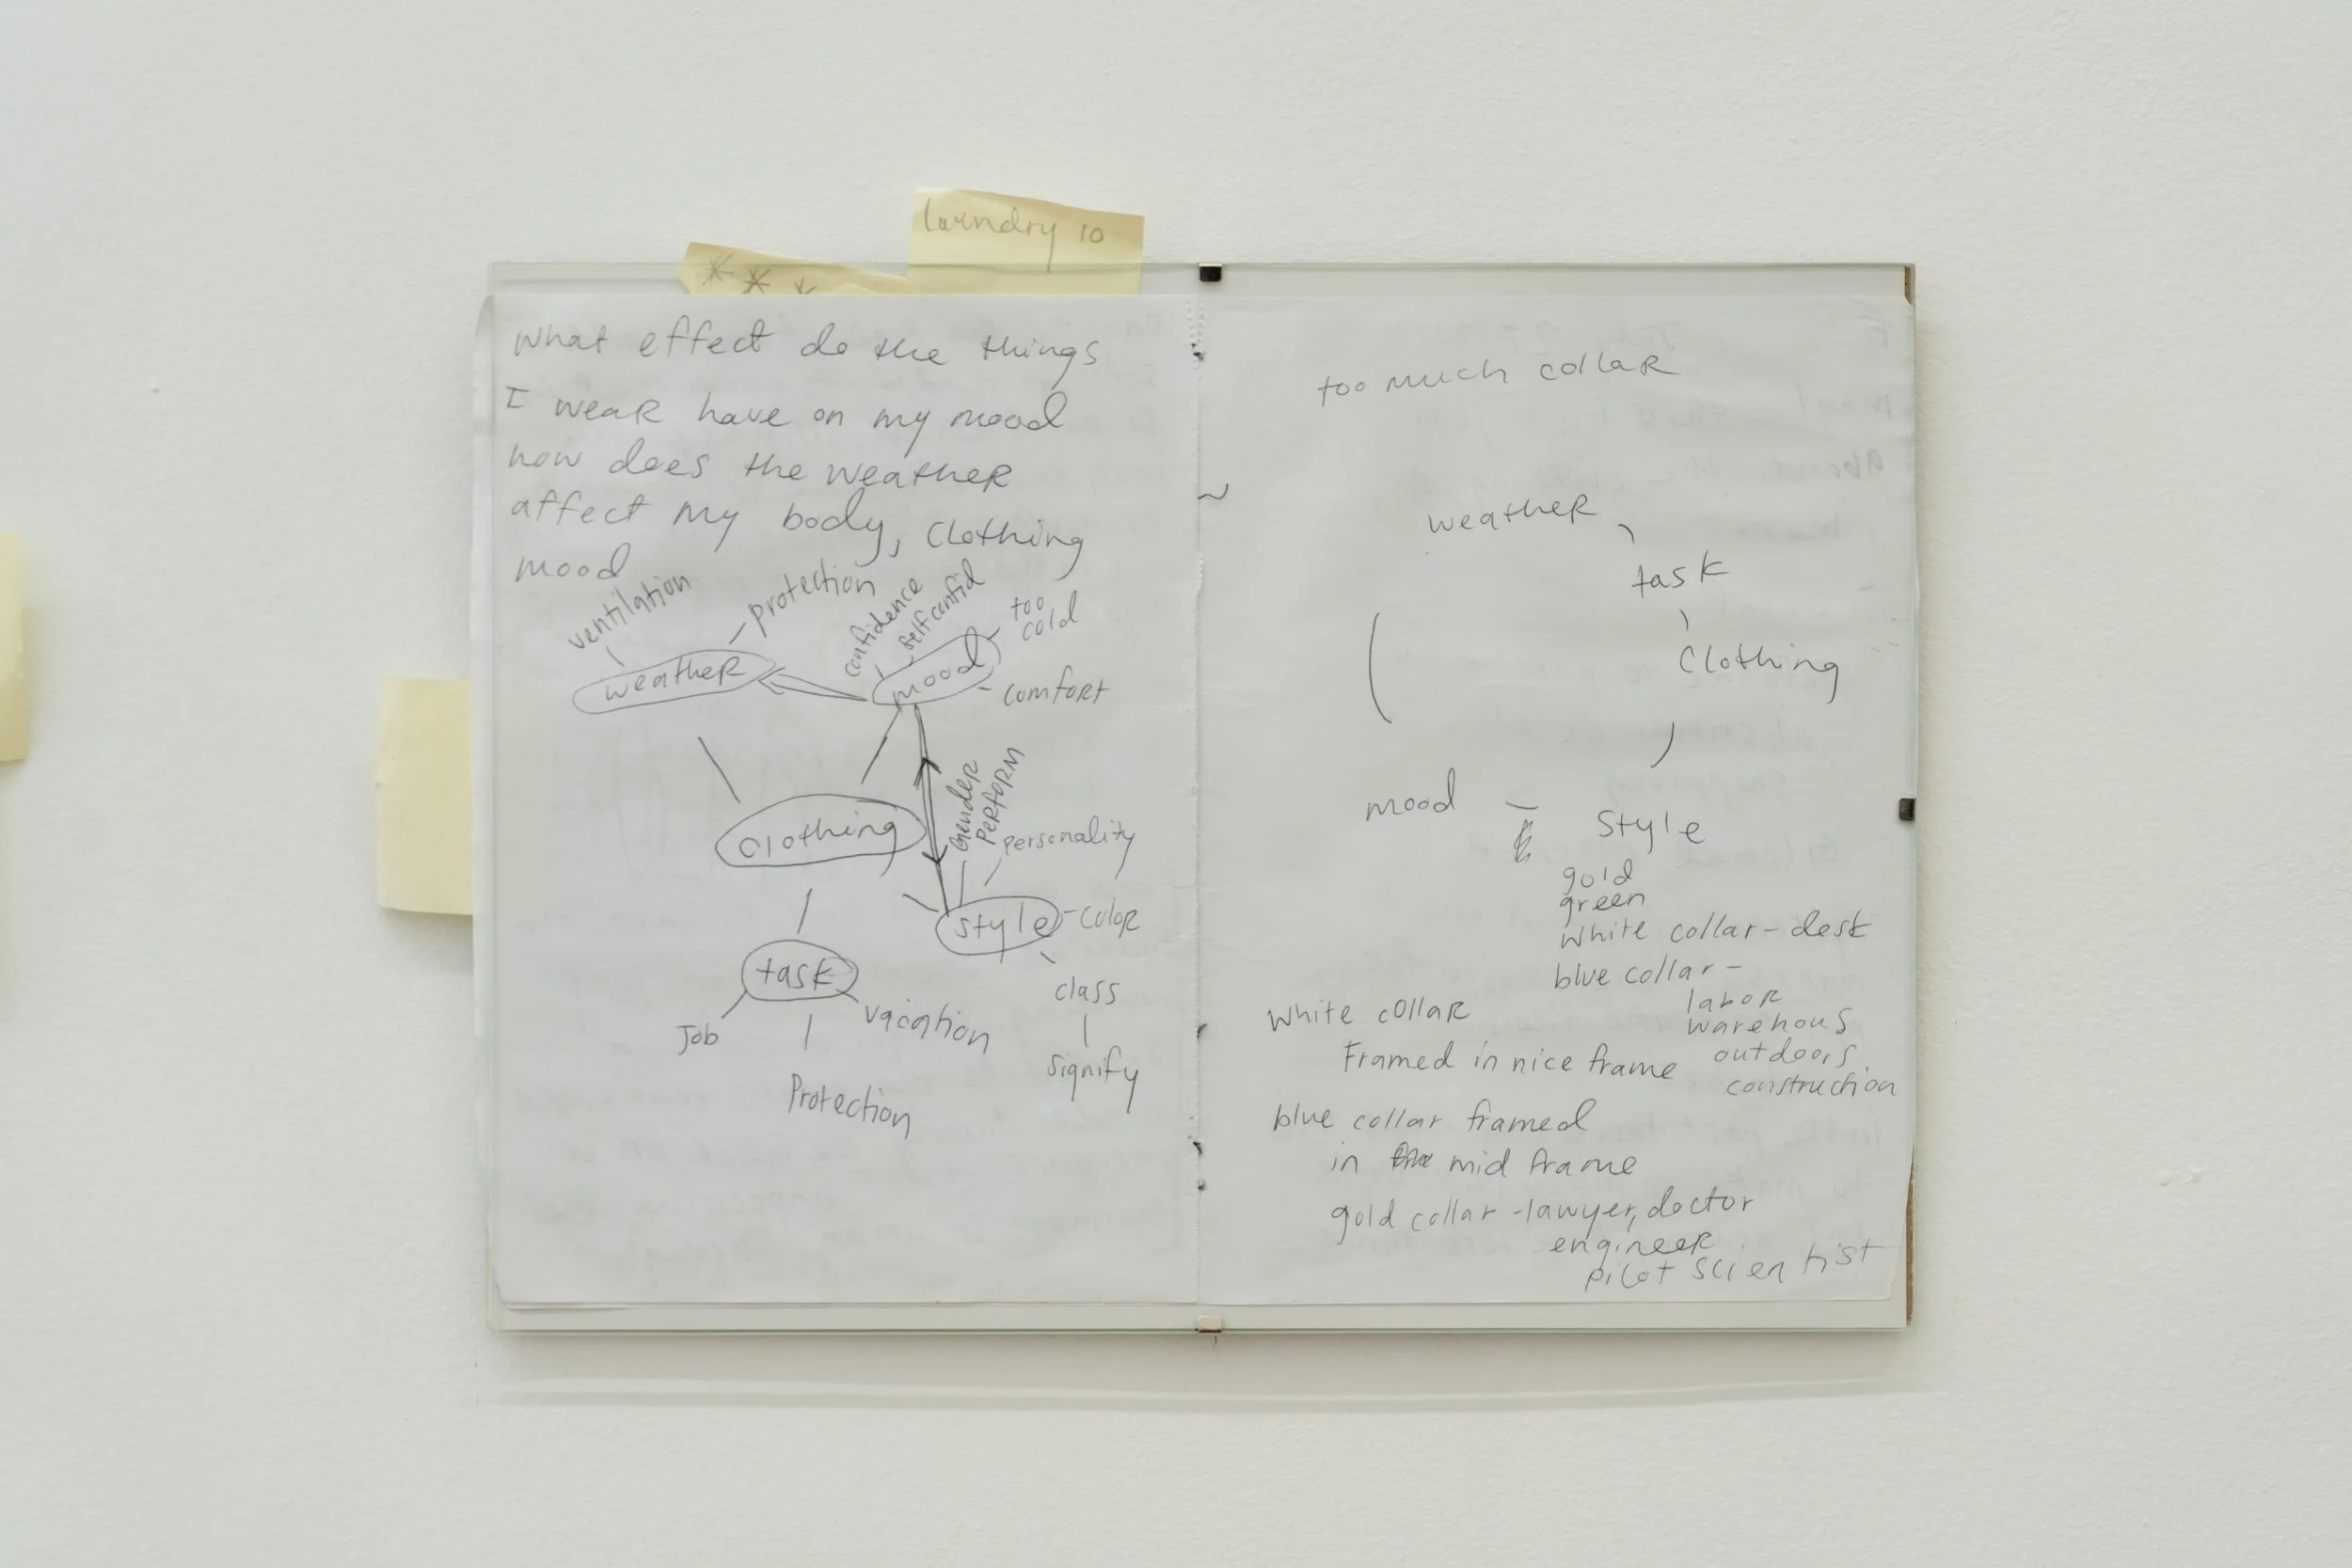 laundry 10
What effect do the things
I wear have on my mood
how does the weather
affect my body, clothing
mood
ventilation
protection
confidence
self confid
too
cold
weather
mood
comfort
Gender
PERFORM
personality
clothing
style
color
task
class
Job
vacation
signify
Protection
too much collar
weather
task
clothing
mood
style
gold
green
white collar - desk
blue collar -
labor
warehous
outdoors
construction
white collar
Framed in nice frame
blue collar framed
in mid frame
gold collar - lawyer, doctor
engineer
pilot scientist